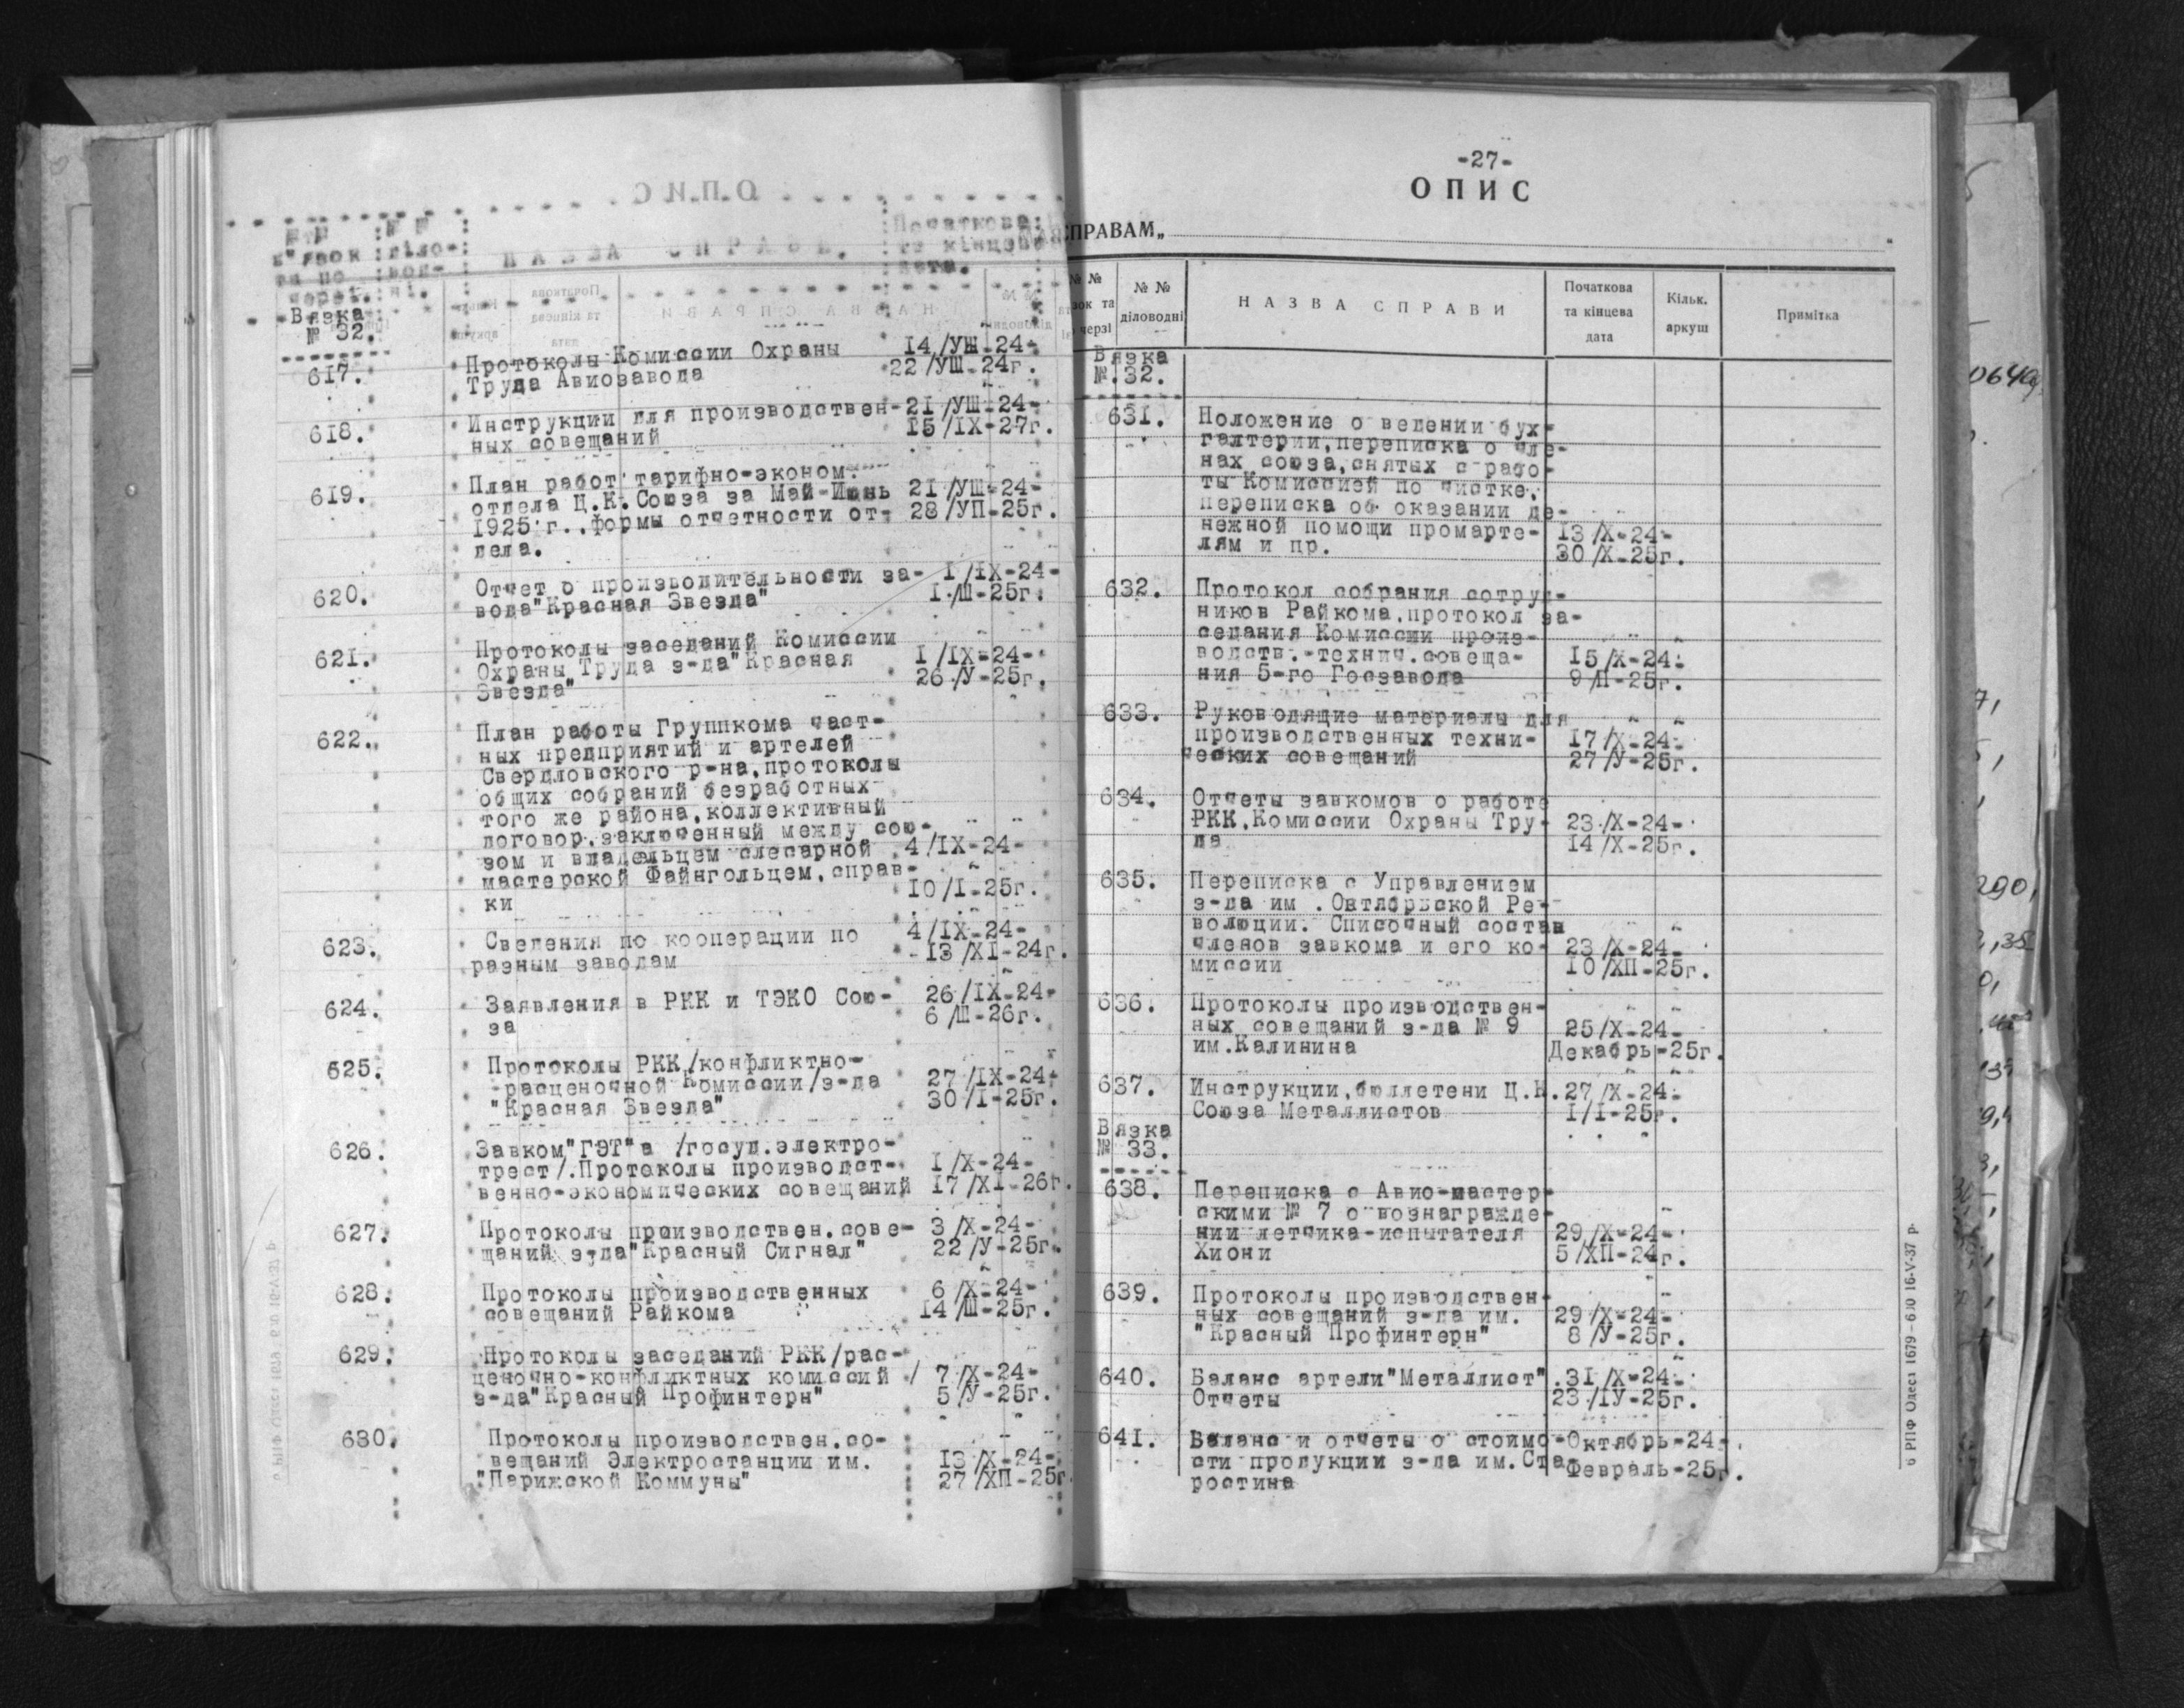 №№
в"язок
та по
черзі.
№ №
діло-
вод-
ні.
НАЗВА СПРАВИ.
Початкова
та кінцева
дата.
Вязка
№ 32.
617. Протоколы Комиссии Охраны 14/УШ-24-
Труда Авиозавода 22/УШ-24г.
618. Инструкции для производствен- 21/УШ-24-
ных совещаний 15/IX-27г.
619. План работ тарифно-эконом.
отдела Ц.К.Союза за Май-Июнь 21/УШ-24-
1925 г.,формы отчетности от- 28/УП-25г.
дела.
620. Отчет о производительности за- I/IX-24-
вода"Красная Звезда" I/Ш-25г.
621. Протоколы заседаний Комиссии
Охраны Труда з-да"Красная I/IX-24-
Звезда" 26/У-25г.
622. План работы Группкома част-
ных предприятий и артелей
Свердловского р-на,протоколы
общих собраний безработных
того же района,коллективный
договор,заключенный между сою-
зом и владельцем слесарной 4/IX-24-
мастерской Файнгольцем,справ-
ки 10/I-25г.
623. Сведения по кооперации по 4/IX-24-
разным заводам 13/XI-24г.
624. Заявления в РКК и ТЭКО Сою- 26/IX-24-
за 6/Ш-26г.
625. Протоколы РКК/конфликтно-
расценочной Комиссии/з-да 27/IX-24-
"Красная Звезда" 30/I-25г.
626. Завком"ГЭТ"а /госуд.электро-
трест/.Протоколы производст- I/X-24-
венно-экономических совещаний 17/XI-26г.
627. Протоколы производствен.сове- 3/X-24-
щаний з-да"Красный Сигнал" 22/У-25г.
628. Протоколы производственных 6/X-24-
совещаний Райкома 14/Ш-25г.
629. Протоколы заседаний РКК/рас-
ценочно-конфликтных комиссий / 7/X-24-
з-да"Красный Профинтерн" 5/У-25г.
630. Протоколы производствен.со-
вещаний Электростанции им. 13/X-24-
"Парижской Коммуны" 27/ХП-25г.
-27-
ОПИС
СПРАВАМ„
№ №
зок та
черзі
№ №
діловодні
НАЗВА СПРАВИ
Початкова
та кінцева
дата
Кільк.
аркуш
Примітка
Вязка
№.32.
631. Положение о ведении бух-
галтерии,переписка о чле-
нах союза,снятых с рабо-
ты Комиссией по чистке,
переписка об оказании де-
нежной помощи промарте- 13/X-24-
лям и пр. 30/X-25г.
632. Протокол собрания сотруд-
ников Райкома,протокол за-
седания Комиссии произ-
водств.-технич.совеща- 15/X-24-
ния 5-го Госзавода 9/П-25г.
633. Руководящие материалы для
производственных техни- 17/X-24-
ческих совещаний 27/У-25г.
634. Отчеты завкомов о работе
РКК,Комиссии Охраны Тру- 23/X-24-
да 14/X-25г.
635. Переписка с Управлением
з-да им .Октябрьской Ре-
волюции. Списочный состав
членов завкома и его ко- 23/X-24-
миссии 10/ХП-25г.
636. Протоколы производствен-
ных совещаний з-да № 9 25/X-24-
им.Калинина Декабрь-25г.
637. Инструкции,бюллетени Ц.К. 27/X-24-
Союза Металлистов I/I-25г.
Вязка
№ 33.
638. Переписка с Авио-мастер-
скими № 7 о вознагражде-
нии летчика-испытателя 29/X-24-
Хиони 5/ХП-24г.
639. Протоколы производствен-
ных совещаний з-да им. 29/X-24-
"Красный Профинтерн" 8/У-25г.
640. Баланс артели"Металлист". 31/X-24-
Отчеты 23/IУ-25г.
641. Баланс и отчеты о стоимо- Октябрь-24-
сти продукции з-да им.Ста- Февраль-25г.
ростина
6 РПФ Одеса 1679 – 6.10 16-V-37 р.